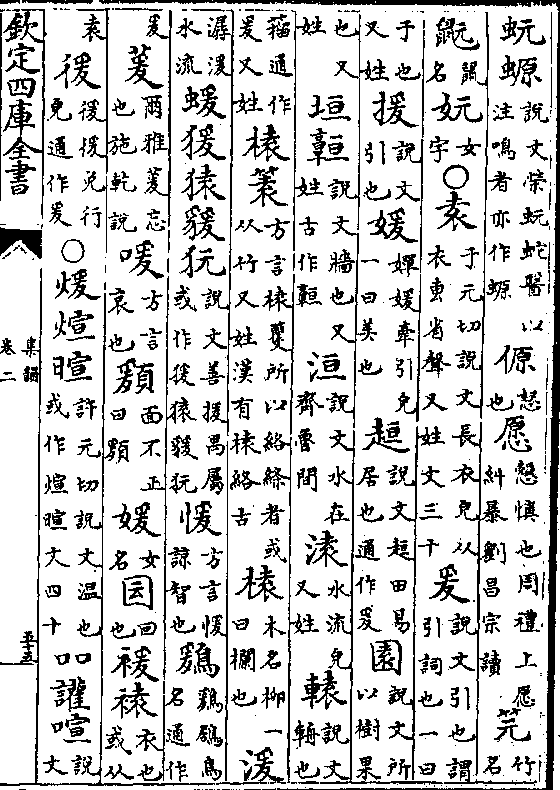 蚖螈說文榮蚖蛇醫以注鳴者亦作螈傆愨也愿愨慎也周禮上愿糾暴劉昌宗讀笎竹名
䶵鼠名妧女字○袁于元切說文長衣皃从衣叀省聲又姓文三十爰說文引也謂引詞也一曰
于也又姓援說文引也媛嬋媛牽引皃一曰美也趄說文趄田易居也通作爰園說文所以樹果
也又姓垣𩫨說文牆也又姓古作𩫨洹說文水在齊魯間溒水流皃又姓轅說文輈也
籀通作爰又姓榬䈠方言榬籰所以絡絲者或从竹又姓漢有榬絡古榬木名柳一曰欄也湲
潺湲水流蝯猨猿𧳭說文善援禺屬或作猨猿𧳭愋方言愋諒智也鶢鶢鶋鳥名通作
爰萲爾雅萲忘也施乾說喛方言哀也䫟面不正曰䫟媛女名囩回也褑褤衣也或从
袁㣪㣪㣪兔行皃通作爰○煖煊暄許元切說文温也或作煊暄文四十吅讙喧說文
欽定四庫全書
集韻
卷二